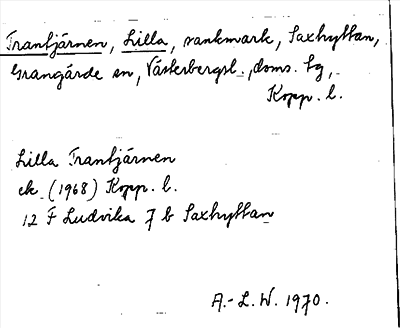 Trantjärnen, Lilla, sankmark, Saxhyttan,
Grangärde sn, Västerbergsl., doms. tg,
Kopp. l.
Lilla Trantjärnen
ek. (1968) Kopp. l.
12 F Ludvika 7 b Saxhyttan
A.-L. W. 1970.